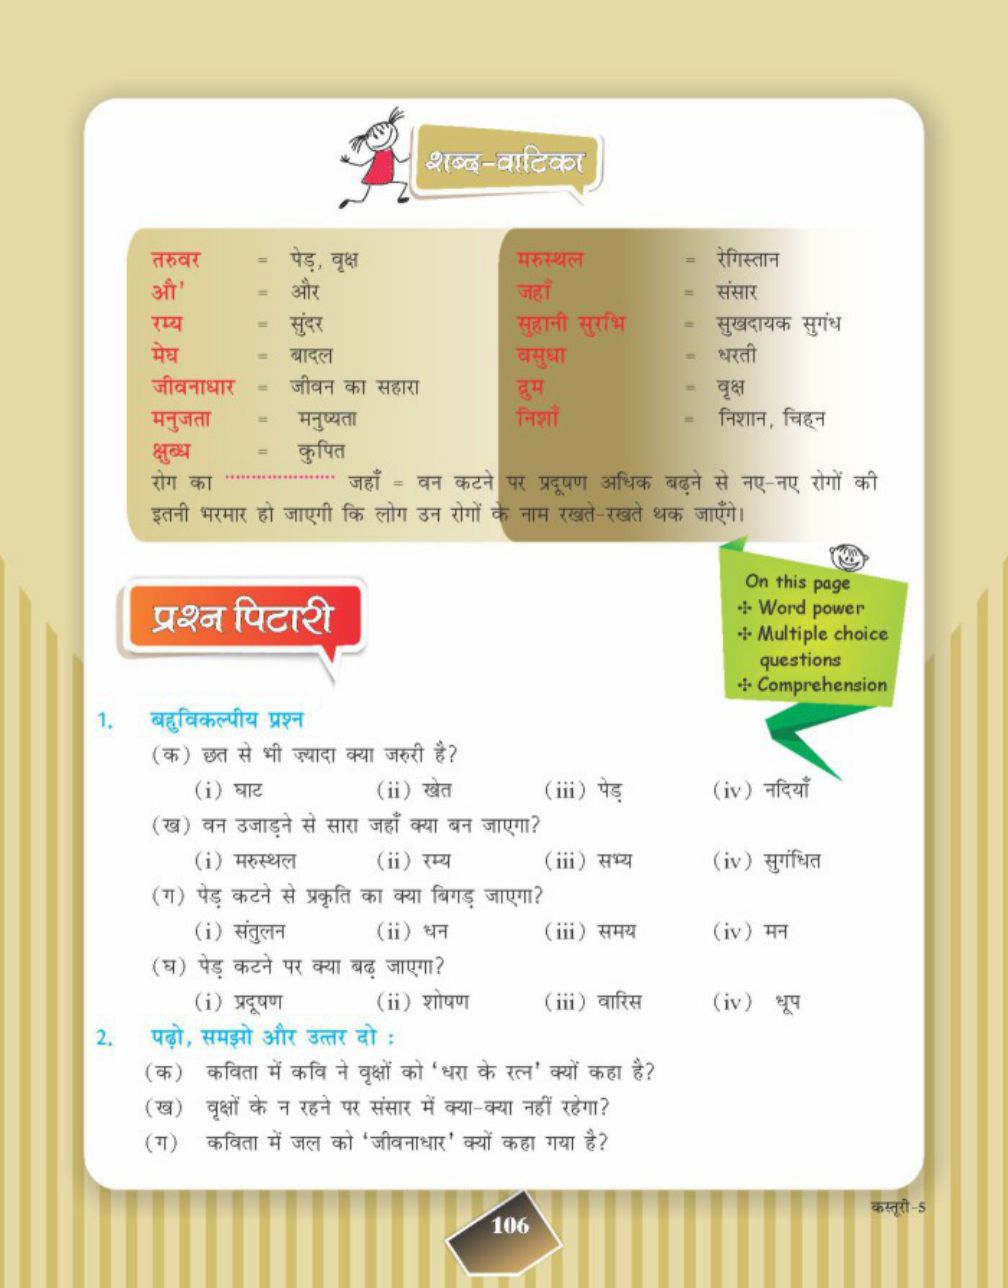 शब्द-वाटिका
तरुवर = पेड़, वृक्ष
औ' = और
रम्य = सुंदर
मेघ = बादल
जीवनाधार = जीवन का सहारा
मनुजता = मनुष्यता
क्षुब्ध = कुपित
मरुस्थल = रेगिस्तान
जहाँ = संसार
सुहानी सुरभि = सुखदायक सुगंध
वसुधा = धरती
द्रुम = वृक्ष
निशाँ = निशान, चिह्न
रोग का ..................... जहाँ = वन कटने पर प्रदूषण अधिक बढ़ने से नए-नए रोगों की
इतनी भरमार हो जाएगी कि लोग उन रोगों के नाम रखते-रखते थक जाएँगे।
On this page
Word power
Multiple choice
questions
Comprehension
प्रश्न पिटारी
1. बहुविकल्पीय प्रश्न
(क) छत से भी ज़्यादा क्या जरुरी है?
(i) घाट (ii) खेत (iii) पेड़ (iv) नदियाँ
(ख) वन उजाड़ने से सारा जहाँ क्या बन जाएगा?
(i) मरुस्थल (ii) रम्य (iii) सभ्य (iv) सुगंधित
(ग) पेड़ कटने से प्रकृति का क्या बिगड़ जाएगा?
(i) संतुलन (ii) धन (iii) समय (iv) मन
(घ) पेड़ कटने पर क्या बढ़ जाएगा?
(i) प्रदूषण (ii) शोषण (iii) वारिस (iv) धूप
2. पढ़ो, समझो और उत्तर दो :
(क) कविता में कवि ने वृक्षों को ‘धरा के रत्न’ क्यों कहा है?
(ख) वृक्षों के न रहने पर संसार में क्या-क्या नहीं रहेगा?
(ग) कविता में जल को ‘जीवनाधार’ क्यों कहा गया है?
106
कस्तूरी-5